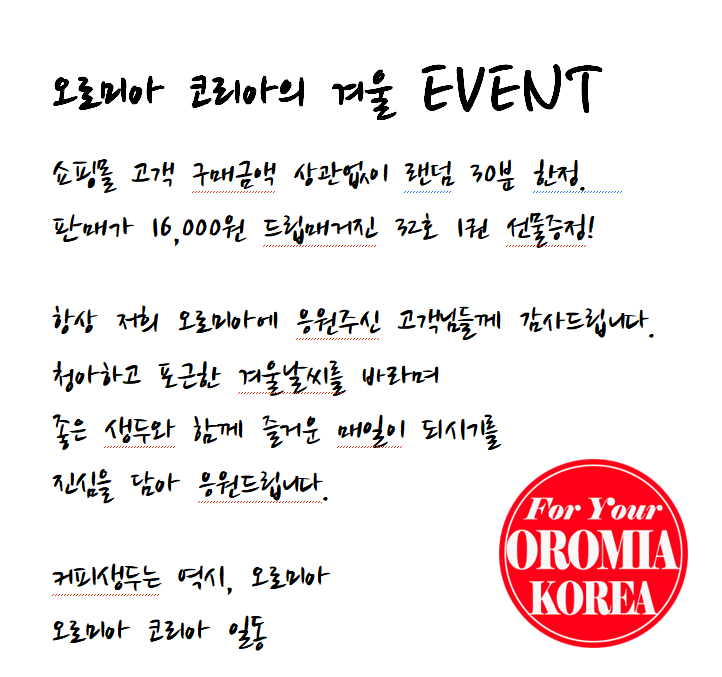 오로미아 코리아의 겨울 EVENT
쇼핑몰 고객 구매금액 상관없이 랜덤 30분 한정.
판매가 16,000원 드립매거진 32호 1권 선물증정!
항상 저희 오로미아에 응원주신 고객님들께 감사드립니다.
청아하고 포근한 겨울날씨를 바라며
좋은 생두와 함께 즐거운 매일이 되시기를
진심을 담아 응원드립니다.
커피생두는 역시, 오로미아
오로미아 코리아 일동
For Your
OROMIA
KOREA